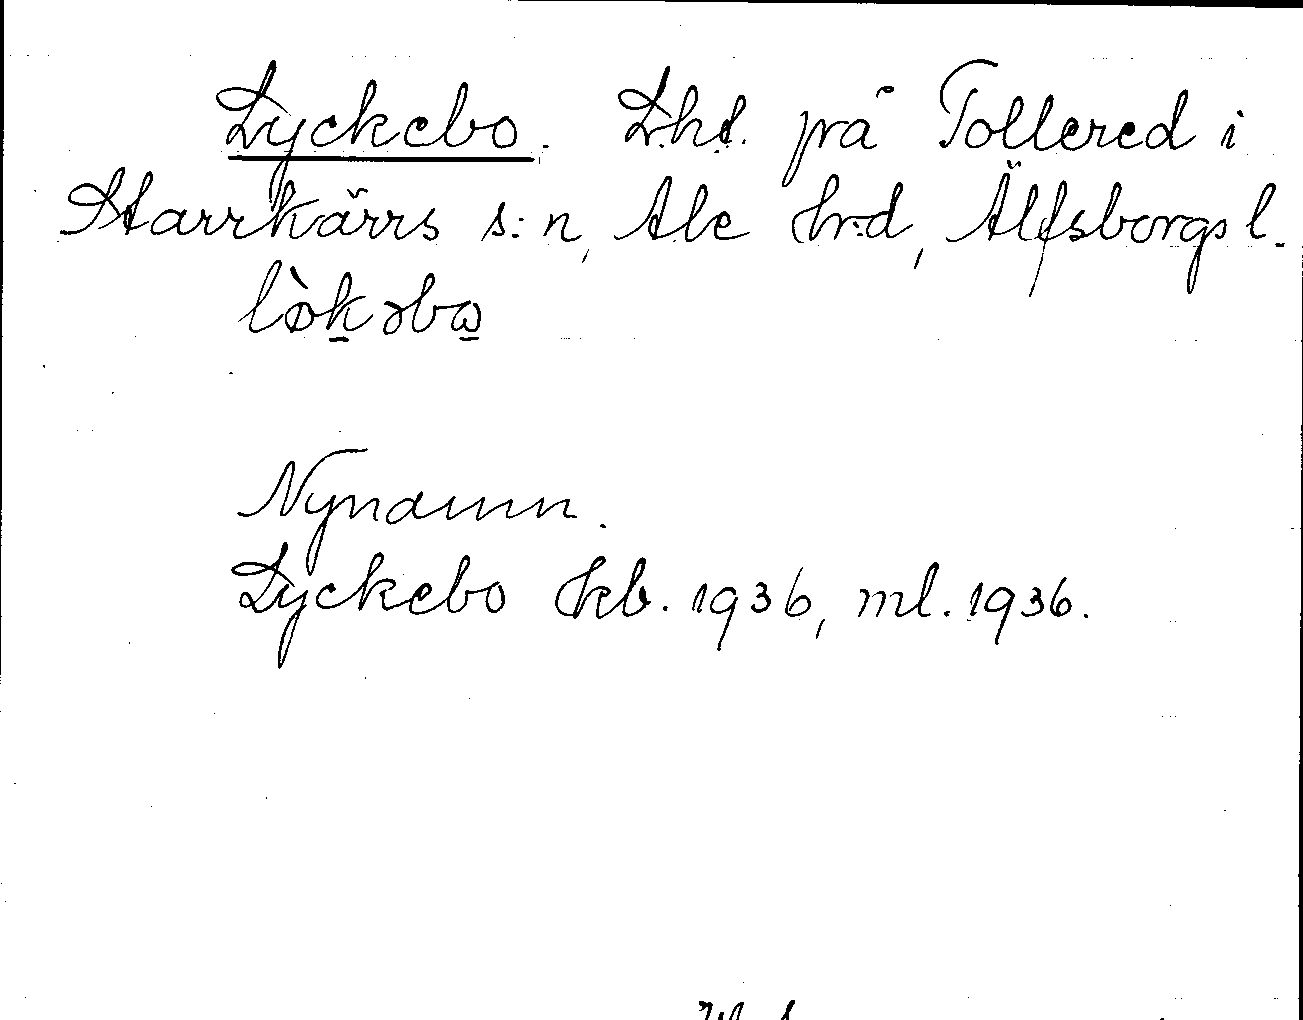 Lyckebo. Lht. på Tollered i
Starrkärrs s:n, Ale hrd, Älfsborgs l.
lø̀kəbω

Nynamn.
Lyckebo kb. 1936, ml. 1936.